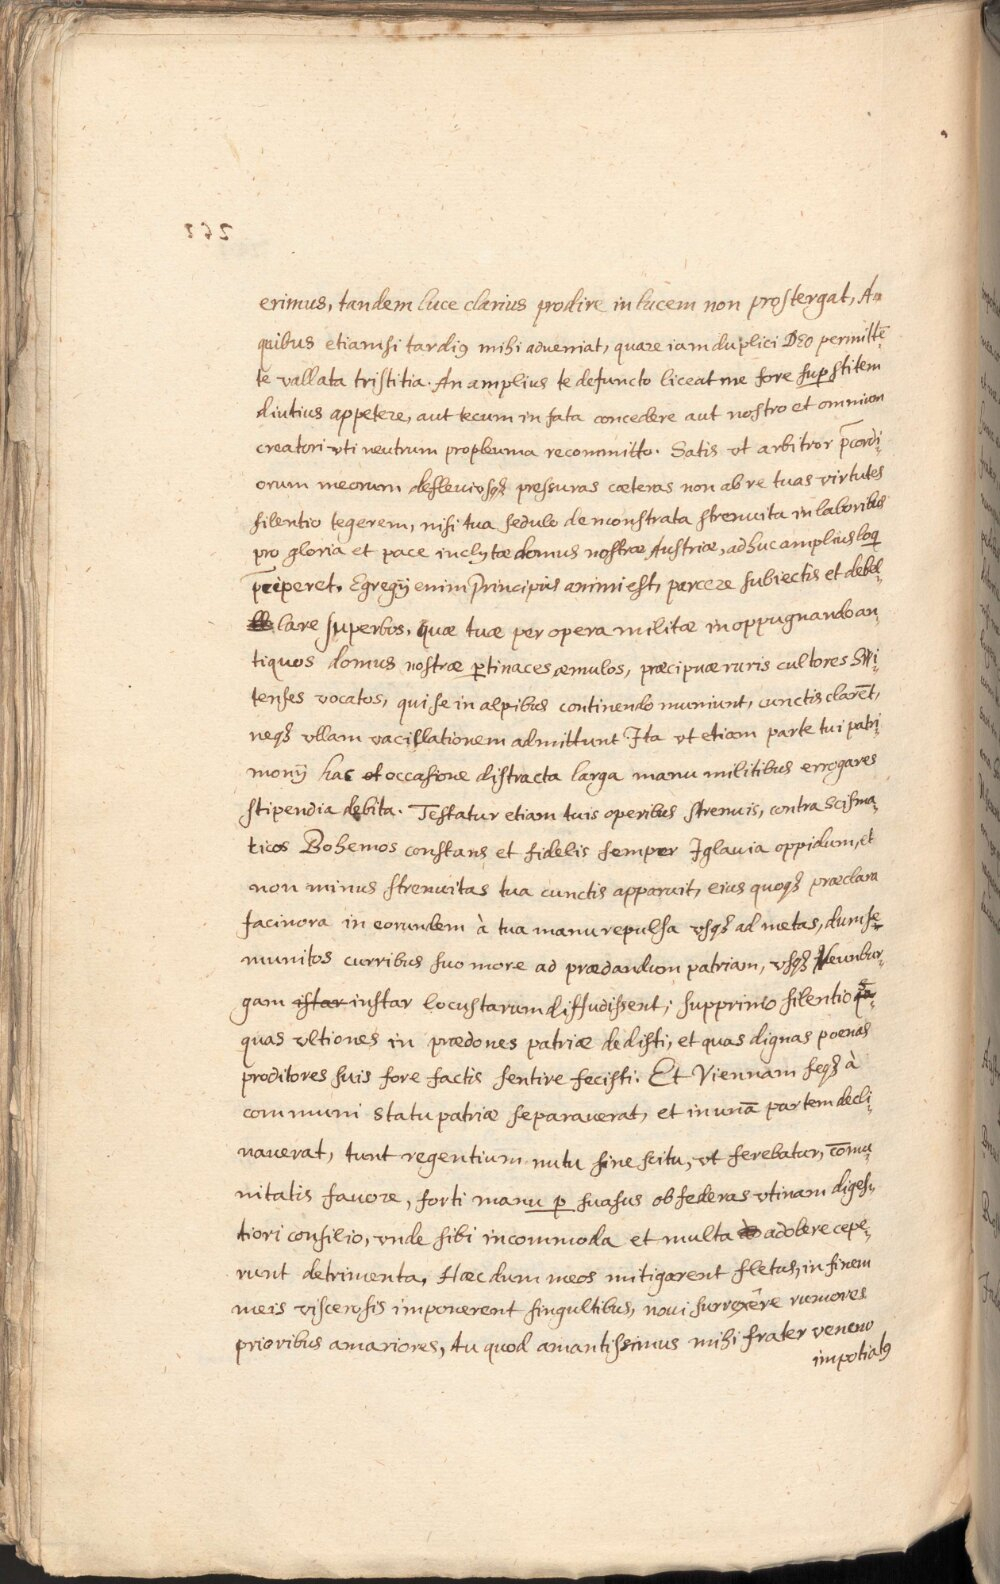 262
erimus, tandem luce clarius prodire in lucem non prostergat, An
quibus etiamsi tardiꝰ mihi adueniat, quare iam duplici Deo permittē-
te vallata tristitia. An amplius te defuncto liceat me fore suꝑstitem
diutius appetere, aut tecum in fata concedere aut nostro et omnium
creatori vti neutrum propleuma recommitto. Satis vt arbitror p̄cordi-
orum meorum defleui vsqꝫ pressuras cæteras non ab re tuas virtutes
silentio tegerem, nisi tua sedulo demonstrata strenuita in laboribus
pro gloria et pace inclytæ domus nostræ Austriæ, adhuc amplius loqi
p̄ciperet. Egregij enim Principis animi est, parcere subiectis et debel-
lare superbos, quæ tuæ per opera militæ in oppugnando an-
tiquos domus nostræ ꝑtinaces æmulos, præcipuæ ruris cultores Swi-
tenses vocatos, qui se in alpibus continendo muniunt, cunctis clarēt,
neqꝫ vllam vacillationem admittunt Ita vt etiam parte tui patri-
monij hac et occasione distracta larga manu militibus errogares
stipendia debita. Testatur etiam tuis operibus strenuis, contra Scisma-
ticos Bohemos constans et fidelis semper Iglauia oppidum, et
non minus strenuitas tua cunctis apparuit, eius quoqꝫ præclara
facinora in eorundem à tua manu repulsa vsqꝫ ad metas, dum se
munitos curribus suo more ad prædandum patriam, vsqꝫ Neunbur-
gam istar instar locustarum diffudissent; supprimo silentio
quas vltiones in prædones patriæ dedisti, et quas dignas poenas
proditores suis fore factis sentire fecisti. Et Viennam seqꝫ à
communi statu patriæ separauerat, et in unā partem decli-
nauerat, tunt regentium nutu sine scitu, vt ferebatur, cōmu-
nitatis fauore, forti manu ꝑ suasus obsederas vtinam digesti-
tiori consilio, vnde sibi incommoda et multa adolere cepe-
runt detrimenta. Hæc dum meos mitigarent fletus, in finem
meis viscerosis imponerent singultibus, noui surrexêre rumores
prioribus amariores, tu quod amantissimus mihi frater veneno
impotiatꝰ